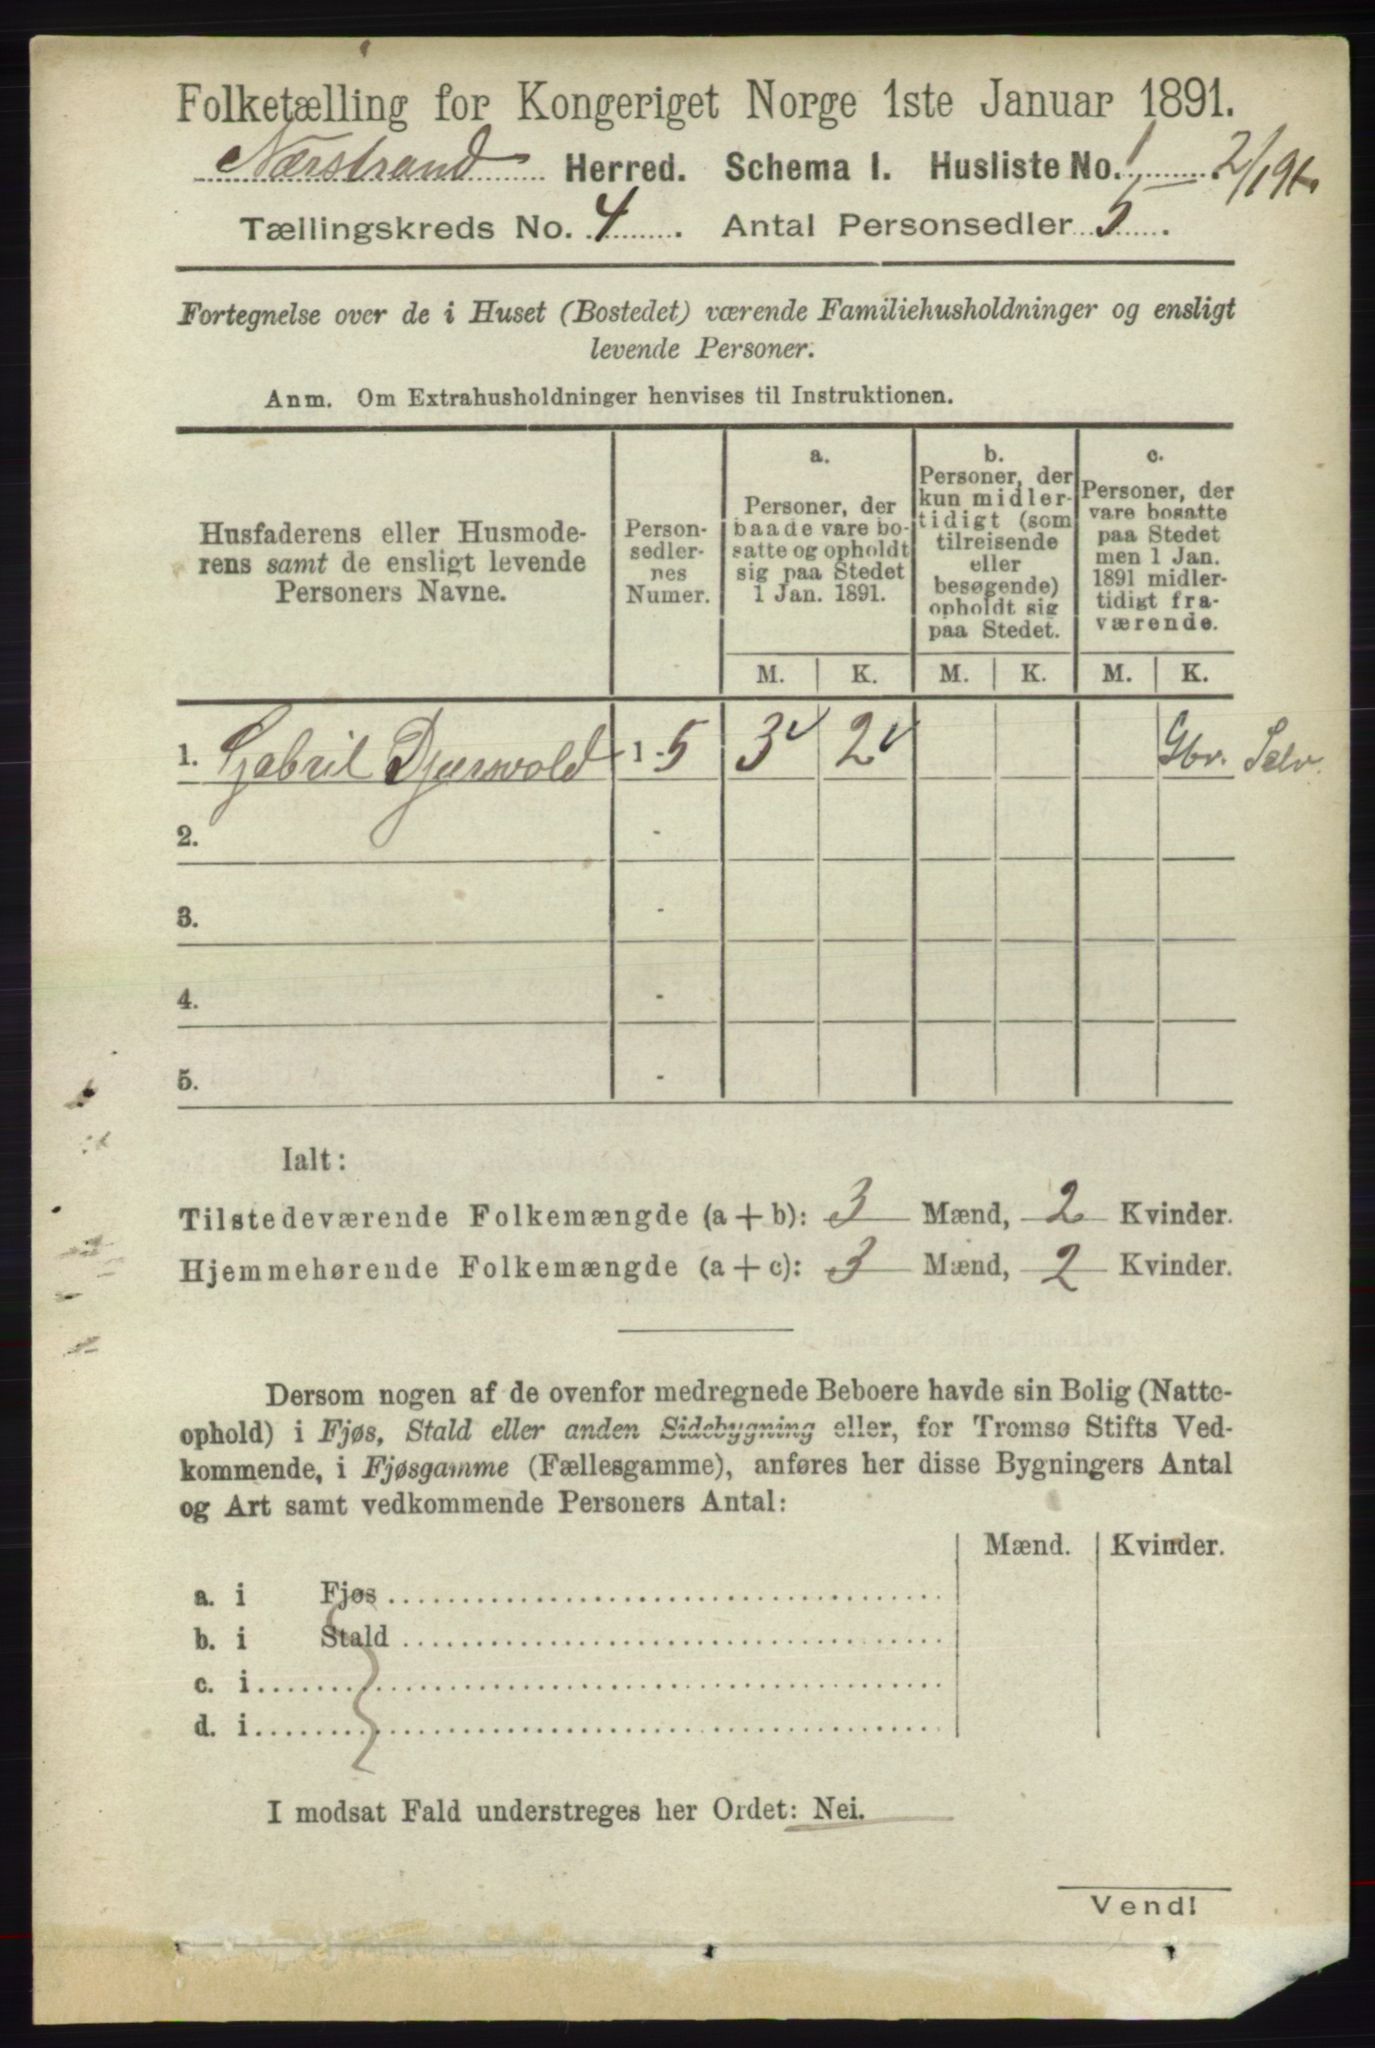 Folketælling for Kongeriget Norge 1ste Januar 1891.
Nærstrand Herred. Schema I. Husliste No. 1
Tællingskreds No. 4. Antal Personsedler 5.
Fortegnelse over de i Huset (Bostedet) værende Familiehusholdninger og ensligt
levende Personer.
Anm. Om Extrahusholdninger henvises til Instruktionen.
Husfaderens eller Husmode-
rens samt de ensligt levende
Personers Navne.
Person-
sedler-
nes
Numer.
a.
Personer, der
baade vare bo-
satte og opholdt
sig paa Stedet
1 Jan. 1891.
b.
Personer, der
kun midler-
tidigt (som
tilreisende
eller
besøgende)
opholdt sig
paa Stedet.
c.
Personer, der
vare bosatte
paa Stedet
men 1 Jan.
1891 midler-
tidigt fra-
værende.
M. K. M. K. M. K.
1. Gabril Djersvold 1-5 3 2 Gbr. Selv.
2. -
3. -
4. -
5. -
Ialt:
Tilstedeværende Folkemængde (a + b): 3 Mænd, 2 Kvinder.
Hjemmehørende Folkemængde (a + c): 3 Mænd, 2 Kvinder.
Dersom nogen af de ovenfor medregnede Beboere havde sin Bolig (Natte-
ophold) i Fjøs, Stald eller anden Sidebygning eller, for Tromsø Stifts Ved-
kommende, i Fjøsgamme (Fællesgamme), anføres her disse Bygningers Antal
og Art samt vedkommende Personers Antal:
Mænd. Kvinder.
a. i Fjøs
b. i Stald
c. i
d. i
I modsat Fald understreges her Ordet: Nei.
Vend!